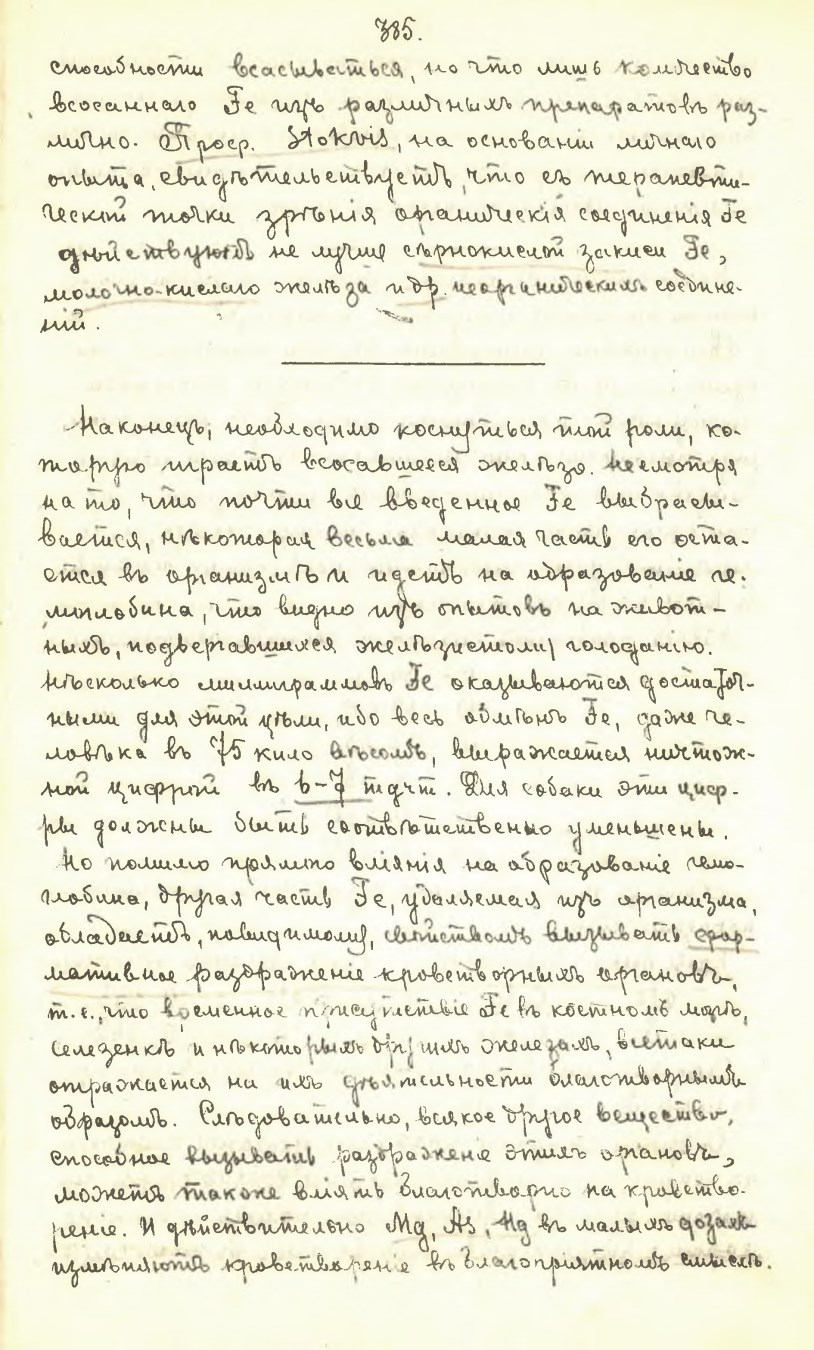 385.
способности всасываться, но что лишь количество
всосаннаго Fe изъ различныхъ препаратовъ раз-
лично. Проф. Stokvis, на основаніи личнаго
опыта, свидѣтельствуетъ, что съ терапевти-
ческой точки зрѣнія органическія соединенія Fe
дѣйствуютъ не лучше сѣрнокислой закиси Fe,
молочно-кислаго желѣза и др. неорганическихъ соедине-
ній.
Наконецъ, необходимо коснуться той роли, ко-
торую играетъ всосавшееся желѣзо. Несмотря
на то, что почти все введенное Fe выбрасы-
вается, нѣкоторая весьма малая часть его оста-
ется въ организмѣ и идетъ на образованіе ге-
моглобина, что видно изъ опытовъ на живот-
ныхъ, подвергавшихся желѣзистому голоданію.
Нѣсколько миллиграммовъ Fe оказываются достаточ-
ными для этой цѣли, ибо весь обмѣнъ Fe, даже че-
ловѣка въ 75 кило вѣсомъ, выражается ничтож-
ной цифрой въ 6-7 mgrm. Для собаки эти циф-
ры должны быть соотвѣтственно уменьшены.
Но помимо прямого вліянія на образованіе гемо-
глобина, другая часть Fe, удаляемая изъ организма,
обладаетъ, повидимому, свойствомъ вызывать фор-
мативное раздраженіе кроветворныхъ органовъ,
т.е., что временное присутствіе Fe въ костномъ мозгѣ,
селезенкѣ и нѣкоторыхъ другихъ железахъ, всетаки
отражается на ихъ дѣятельности благотворнымъ
образомъ. Слѣдовательно, всякое другое вещество,
способное вызывать раздраженіе этихъ органовъ,
можетъ также вліять благотворно на кроветво-
реніе. И дѣйствительно Mg, As, Hg въ малыхъ дозахъ
измѣняютъ кроветвореніе въ благопріятномъ смыслѣ.